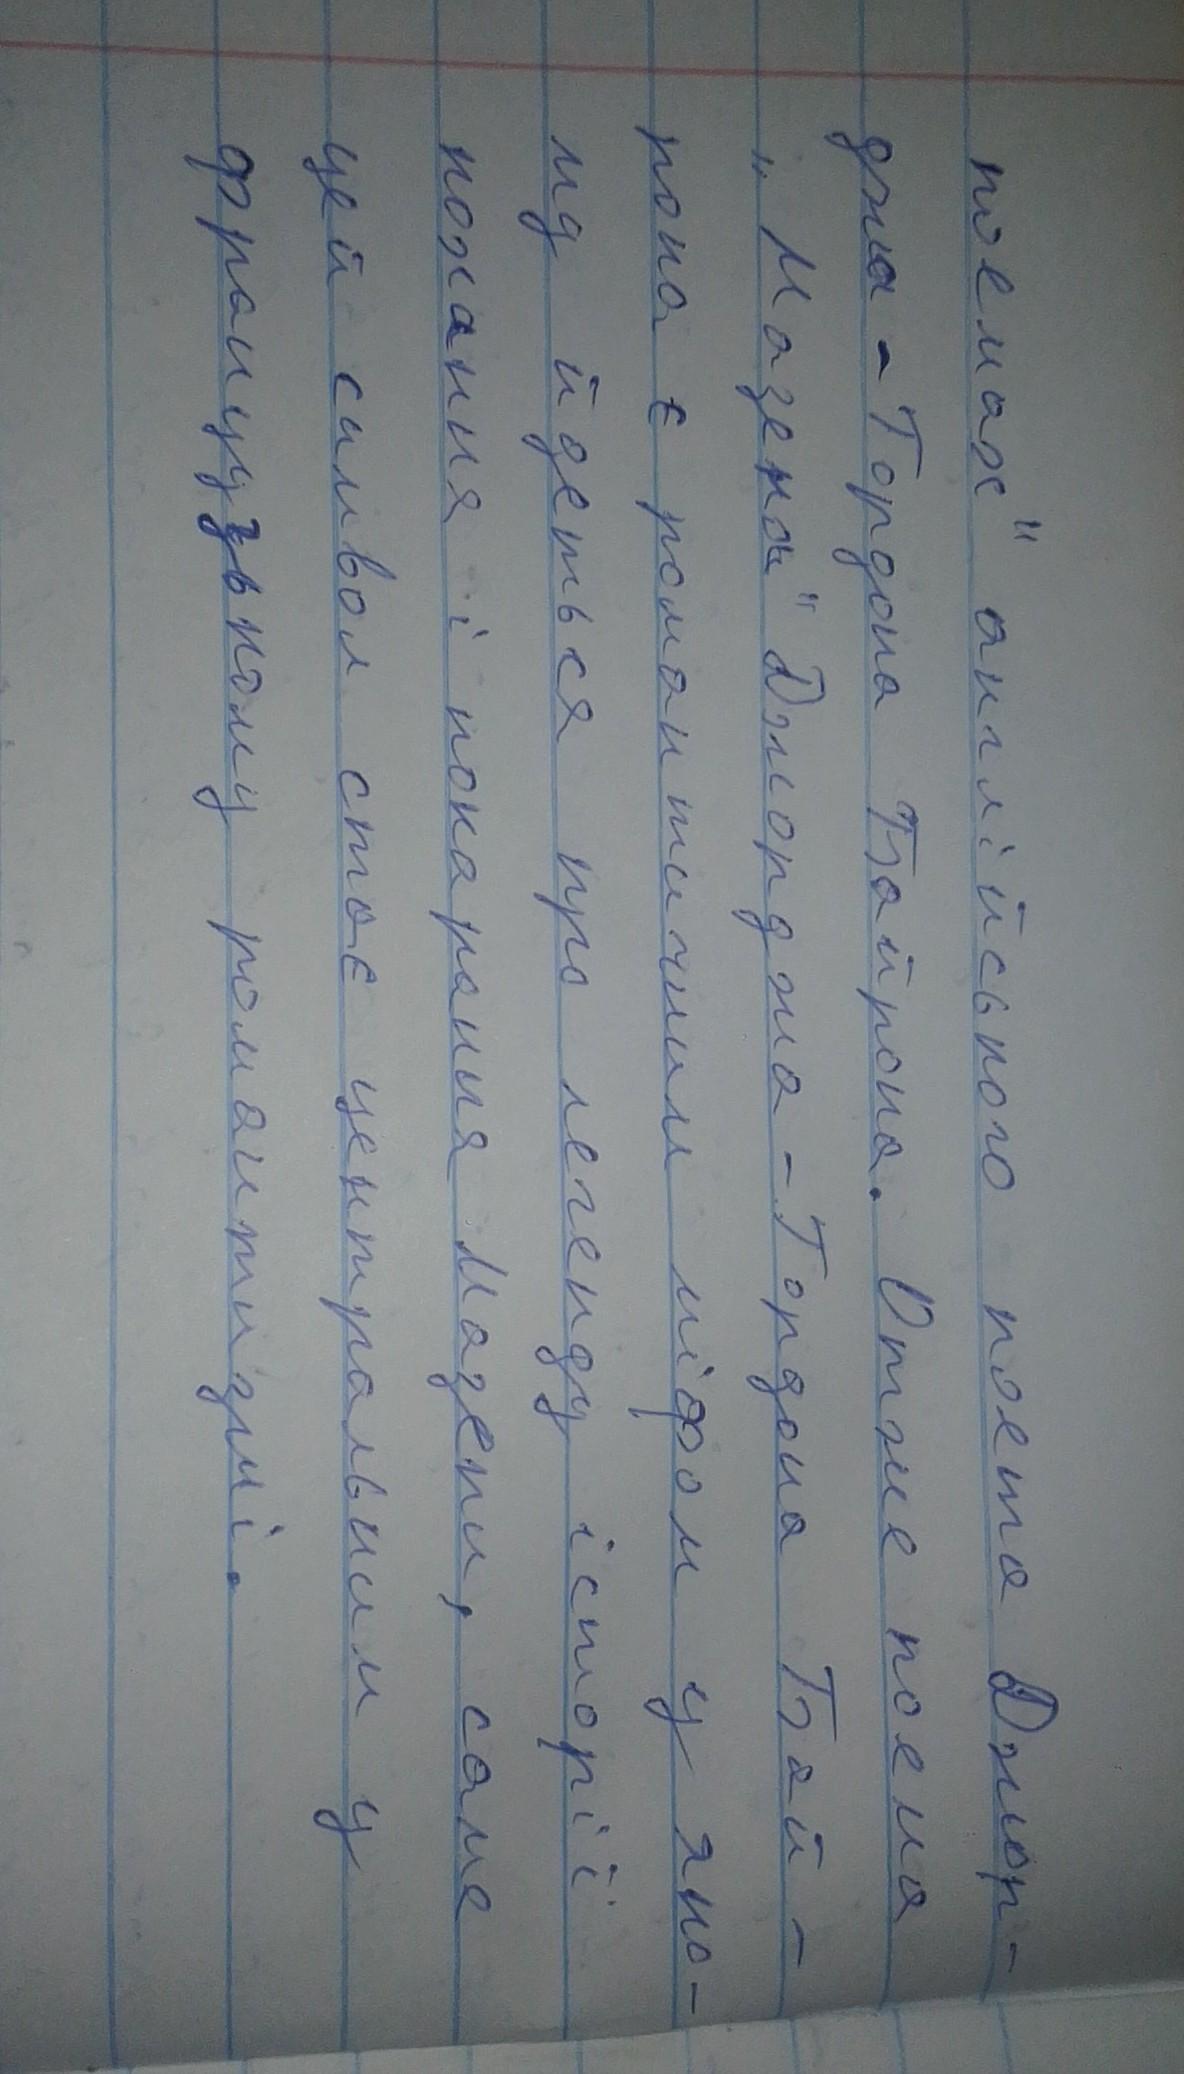 поемах" англійського поета Джор-
джа-Гордона Байрона. Отже поема
"Мазепа" Джорджа-Гордона Бай-
рона є романтичим міфом у яко-
мд йдеться про легенду історії
кохання і покарання Мазепи, саме
цей символ стає центральним у
французькому романтизмі.